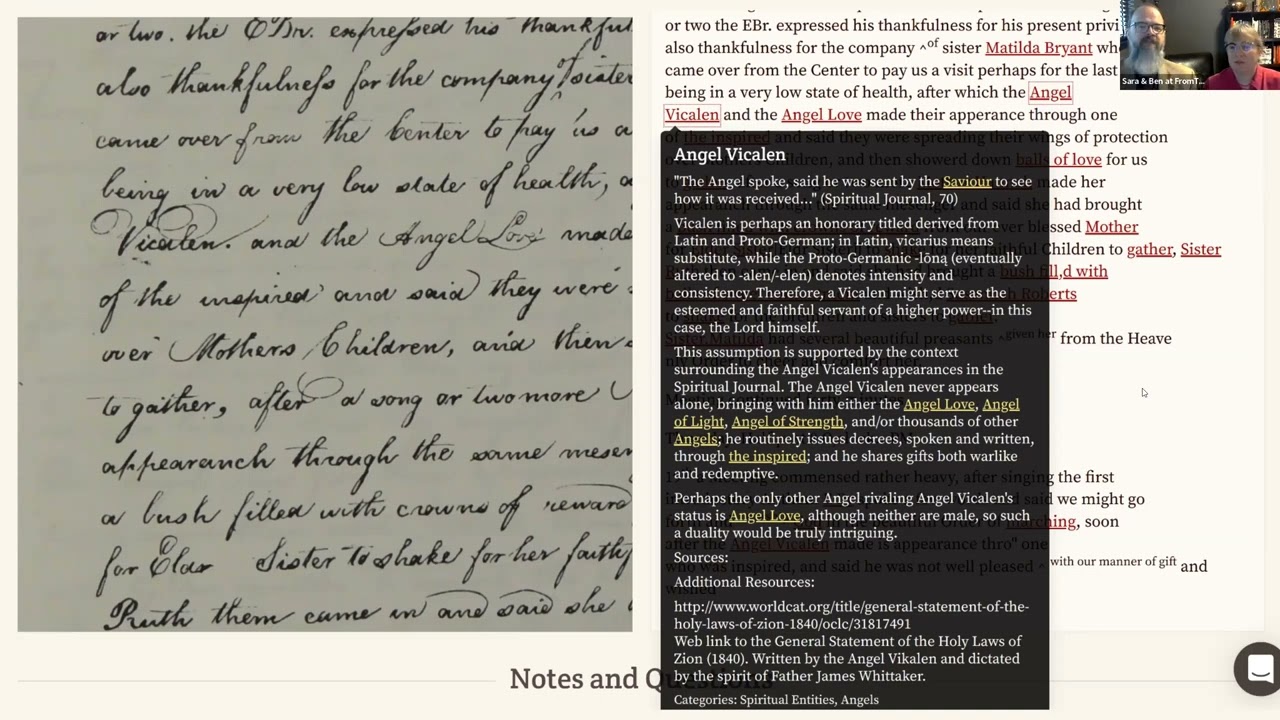 or two. the EBr. expressed his thankful
also thankfulness for the company ^of sister
came over from the Center to pay us a
being in a very low state of health, a
Vicalen. and the Angel Love made
of the inspired and said they were
over Mothers Children, and then
to gather, after a song or two more
appearanch through the same messen
a bush filled with crowns of reward
for Elder Sister to shake for her faithf
Ruth them came in and said she
or two the EBr. expressed his thankfulness for his present privi
also thankfulness for the company ^of sister Matilda Bryant who
came over from the Center to pay us a visit perhaps for the last
being in a very low state of health, after which the Angel
Vicalen and the Angel Love made their apperance through one
of the inspired and said they were spreading their wings of protection
over Mothers Children, and then showerd down balls of love for us
made her
and said she had brought
blessed Mother
Children to gather, Sister
bush fill,d with
Roberts
Sister Matilda had several beautiful peasants ^given her from the Heave
commensed rather heavy, after singing the first
said we might go
marching, soon
after the Angel Vicalen made is apperance thro" one
who was inspired, and said he was not well pleased ^ with our manner of gift and
wished
Angel Vicalen
"The Angel spoke, said he was sent by the Saviour to see
how it was received..." (Spiritual Journal, 70)
Vicalen is perhaps an honorary titled derived from
Latin and Proto-German; in Latin, vicarius means
substitute, while the Proto-Germanic -lōną (eventually
altered to -alen/-elen) denotes intensity and
consistency. Therefore, a Vicalen might serve as the
esteemed and faithful servant of a higher power--in this
case, the Lord himself.
This assumption is supported by the context
surrounding the Angel Vicalen's appearances in the
Spiritual Journal. The Angel Vicalen never appears
alone, bringing with him either the Angel Love, Angel
of Light, Angel of Strength, and/or thousands of other
Angels; he routinely issues decrees, spoken and written,
through the inspired; and he shares gifts both warlike
and redemptive.
Perhaps the only other Angel rivaling Angel Vicalen's
status is Angel Love, although neither are male, so such
a duality would be truly intriguing.
Sources:
Additional Resources:
http://www.worldcat.org/title/general-statement-of-the-
holy-laws-of-zion-1840/oclc/31817491
Web link to the General Statement of the Holy Laws of
Zion (1840). Written by the Angel Vikalen and dictated
by the spirit of Father James Whittaker.
Categories: Spiritual Entities, Angels
Notes and Questions
Sara & Ben at FromT...